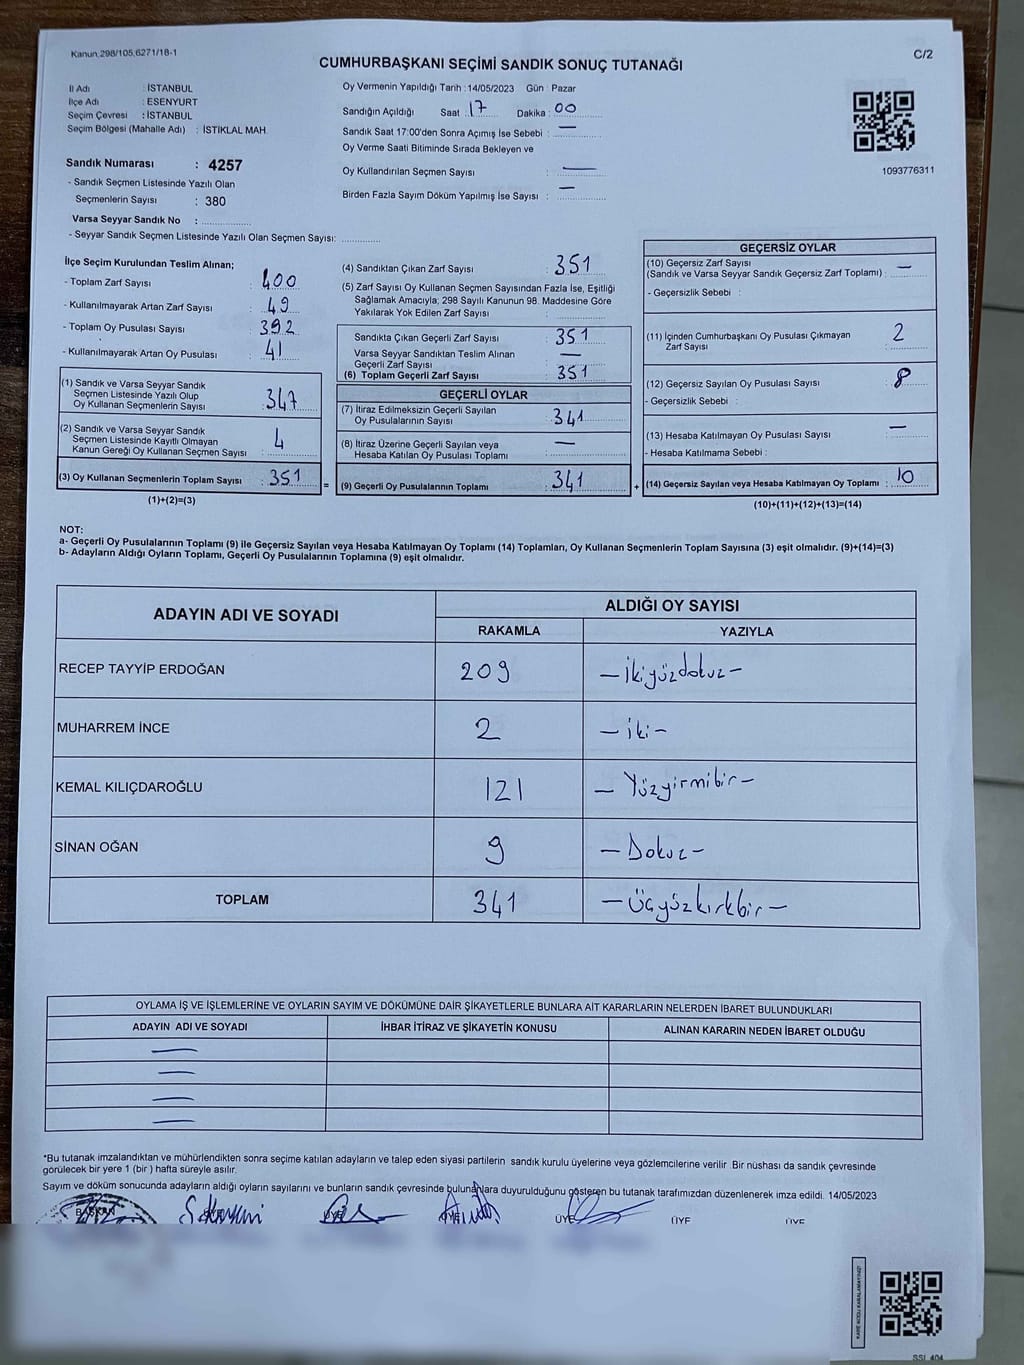 Kanun,298/105,6271/18-1
C/2
CUMHURBAŞKANI SEÇİMİ SANDIK SONUÇ TUTANAĞI
İl Adı : İSTANBUL
İlçe Adı : ESENYURT
Seçim Çevresi : İSTANBUL
Seçim Bölgesi (Mahalle Adı) : İSTİKLAL MAH.
Sandık Numarası : 4257
- Sandık Seçmen Listesinde Yazılı Olan
Seçmenlerin Sayısı : 380
Varsa Seyyar Sandık No :
- Seyyar Sandık Seçmen Listesinde Yazılı Olan Seçmen Sayısı:
Oy Vermenin Yapıldığı Tarih :14/05/2023 Gün : Pazar
Sandığın Açıldığı Saat : 17 Dakika : 00
Sandık Saat 17:00'den Sonra Açımış İse Sebebi : —
Oy Verme Saati Bitiminde Sırada Bekleyen ve
Oy Kullandırılan Seçmen Sayısı : —
Birden Fazla Sayım Döküm Yapılmış İse Sayısı : —
1093776311
İlçe Seçim Kurulundan Teslim Alınan;
- Toplam Zarf Sayısı : 400
- Kullanılmayarak Artan Zarf Sayısı : 49
- Toplam Oy Pusulası Sayısı : 392
- Kullanılmayarak Artan Oy Pusulası : 41
(1) Sandık ve Varsa Seyyar Sandık
Seçmen Listesinde Yazılı Olup
Oy Kullanan Seçmenlerin Sayısı : 347
(2) Sandık ve Varsa Seyyar Sandık
Seçmen Listesinde Kayıtlı Olmayan
Kanun Gereği Oy Kullanan Seçmen Sayısı : 4
(3) Oy Kullanan Seçmenlerin Toplam Sayısı : 351 =
(1)+(2)=(3)
(4) Sandıktan Çıkan Zarf Sayısı : 351
(5) Zarf Sayısı Oy Kullanan Seçmen Sayısından Fazla İse, Eşitliği
Sağlamak Amacıyla; 298 Sayılı Kanunun 98. Maddesine Göre
Yakılarak Yok Edilen Zarf Sayısı :
Sandıkta Çıkan Geçerli Zarf Sayısı : 351
Varsa Seyyar Sandıktan Teslim Alınan
Geçerli Zarf Sayısı : —
(6) Toplam Geçerli Zarf Sayısı : 351
GEÇERLİ OYLAR
(7) İtiraz Edilmeksizin Geçerli Sayılan
Oy Pusulalarının Sayısı : 341
(8) İtiraz Üzerine Geçerli Sayılan veya
Hesaba Katılan Oy Pusulası Toplamı : —
(9) Geçerli Oy Pusulalarının Toplamı : 341 +
GEÇERSİZ OYLAR
(10) Geçersiz Zarf Sayısı
(Sandık ve Varsa Seyyar Sandık Geçersiz Zarf Toplamı) : —
- Geçersizlik Sebebi :
(11) İçinden Cumhurbaşkanı Oy Pusulası Çıkmayan
Zarf Sayısı : 2
(12) Geçersiz Sayılan Oy Pusulası Sayısı : 8
- Geçersizlik Sebebi :
(13) Hesaba Katılmayan Oy Pusulası Sayısı : —
- Hesaba Katılmama Sebebi :
(14) Geçersiz Sayılan veya Hesaba Katılmayan Oy Toplamı : 10
(10)+(11)+(12)+(13)=(14)
NOT:
a- Geçerli Oy Pusulalarının Toplamı (9) ile Geçersiz Sayılan veya Hesaba Katılmayan Oy Toplamı (14) Toplamları, Oy Kullanan Seçmenlerin Toplam Sayısına (3) eşit olmalıdır. (9)+(14)=(3)
b- Adayların Aldığı Oyların Toplamı, Geçerli Oy Pusulalarının Toplamına (9) eşit olmalıdır.
ADAYIN ADI VE SOYADI ALDIĞI OY SAYISI
RAKAMLA YAZIYLA
RECEP TAYYİP ERDOĞAN 209 — İkiyüzdokuz —
MUHARREM İNCE 2 — iki —
KEMAL KILIÇDAROĞLU 121 — Yüzyirmibir —
SİNAN OĞAN 9 — Dokuz —
TOPLAM 341 — Üçyüzkırkbir —
OYLAMA İŞ VE İŞLEMLERİNE VE OYLARIN SAYIM VE DÖKÜMÜNE DAİR ŞİKAYETLERLE BUNLARA AİT KARARLARIN NELERDEN İBARET BULUNDUKLARI
ADAYIN ADI VE SOYADI İHBAR İTİRAZ VE ŞİKAYETİN KONUSU ALINAN KARARIN NEDEN İBARET OLDUĞU
—
—
—
—
*Bu tutanak imzalandıktan ve mühürlendikten sonra seçime katılan adayların ve talep eden siyasi partilerin sandık kurulu üyelerine veya gözlemcilerine verilir. Bir nüshası da sandık çevresinde
görülecek bir yere 1 (bir) hafta süreyle asılır.
Sayım ve döküm sonucunda adayların aldığı oyların sayılarını ve bunların sandık çevresinde bulunanlara duyurulduğunu gösteren bu tutanak tarafımızdan düzenlenerek imza edildi. 14/05/2023
BAŞKAN ÜYE ÜYE ÜYE ÜYE ÜYE ÜYE
SSI_404